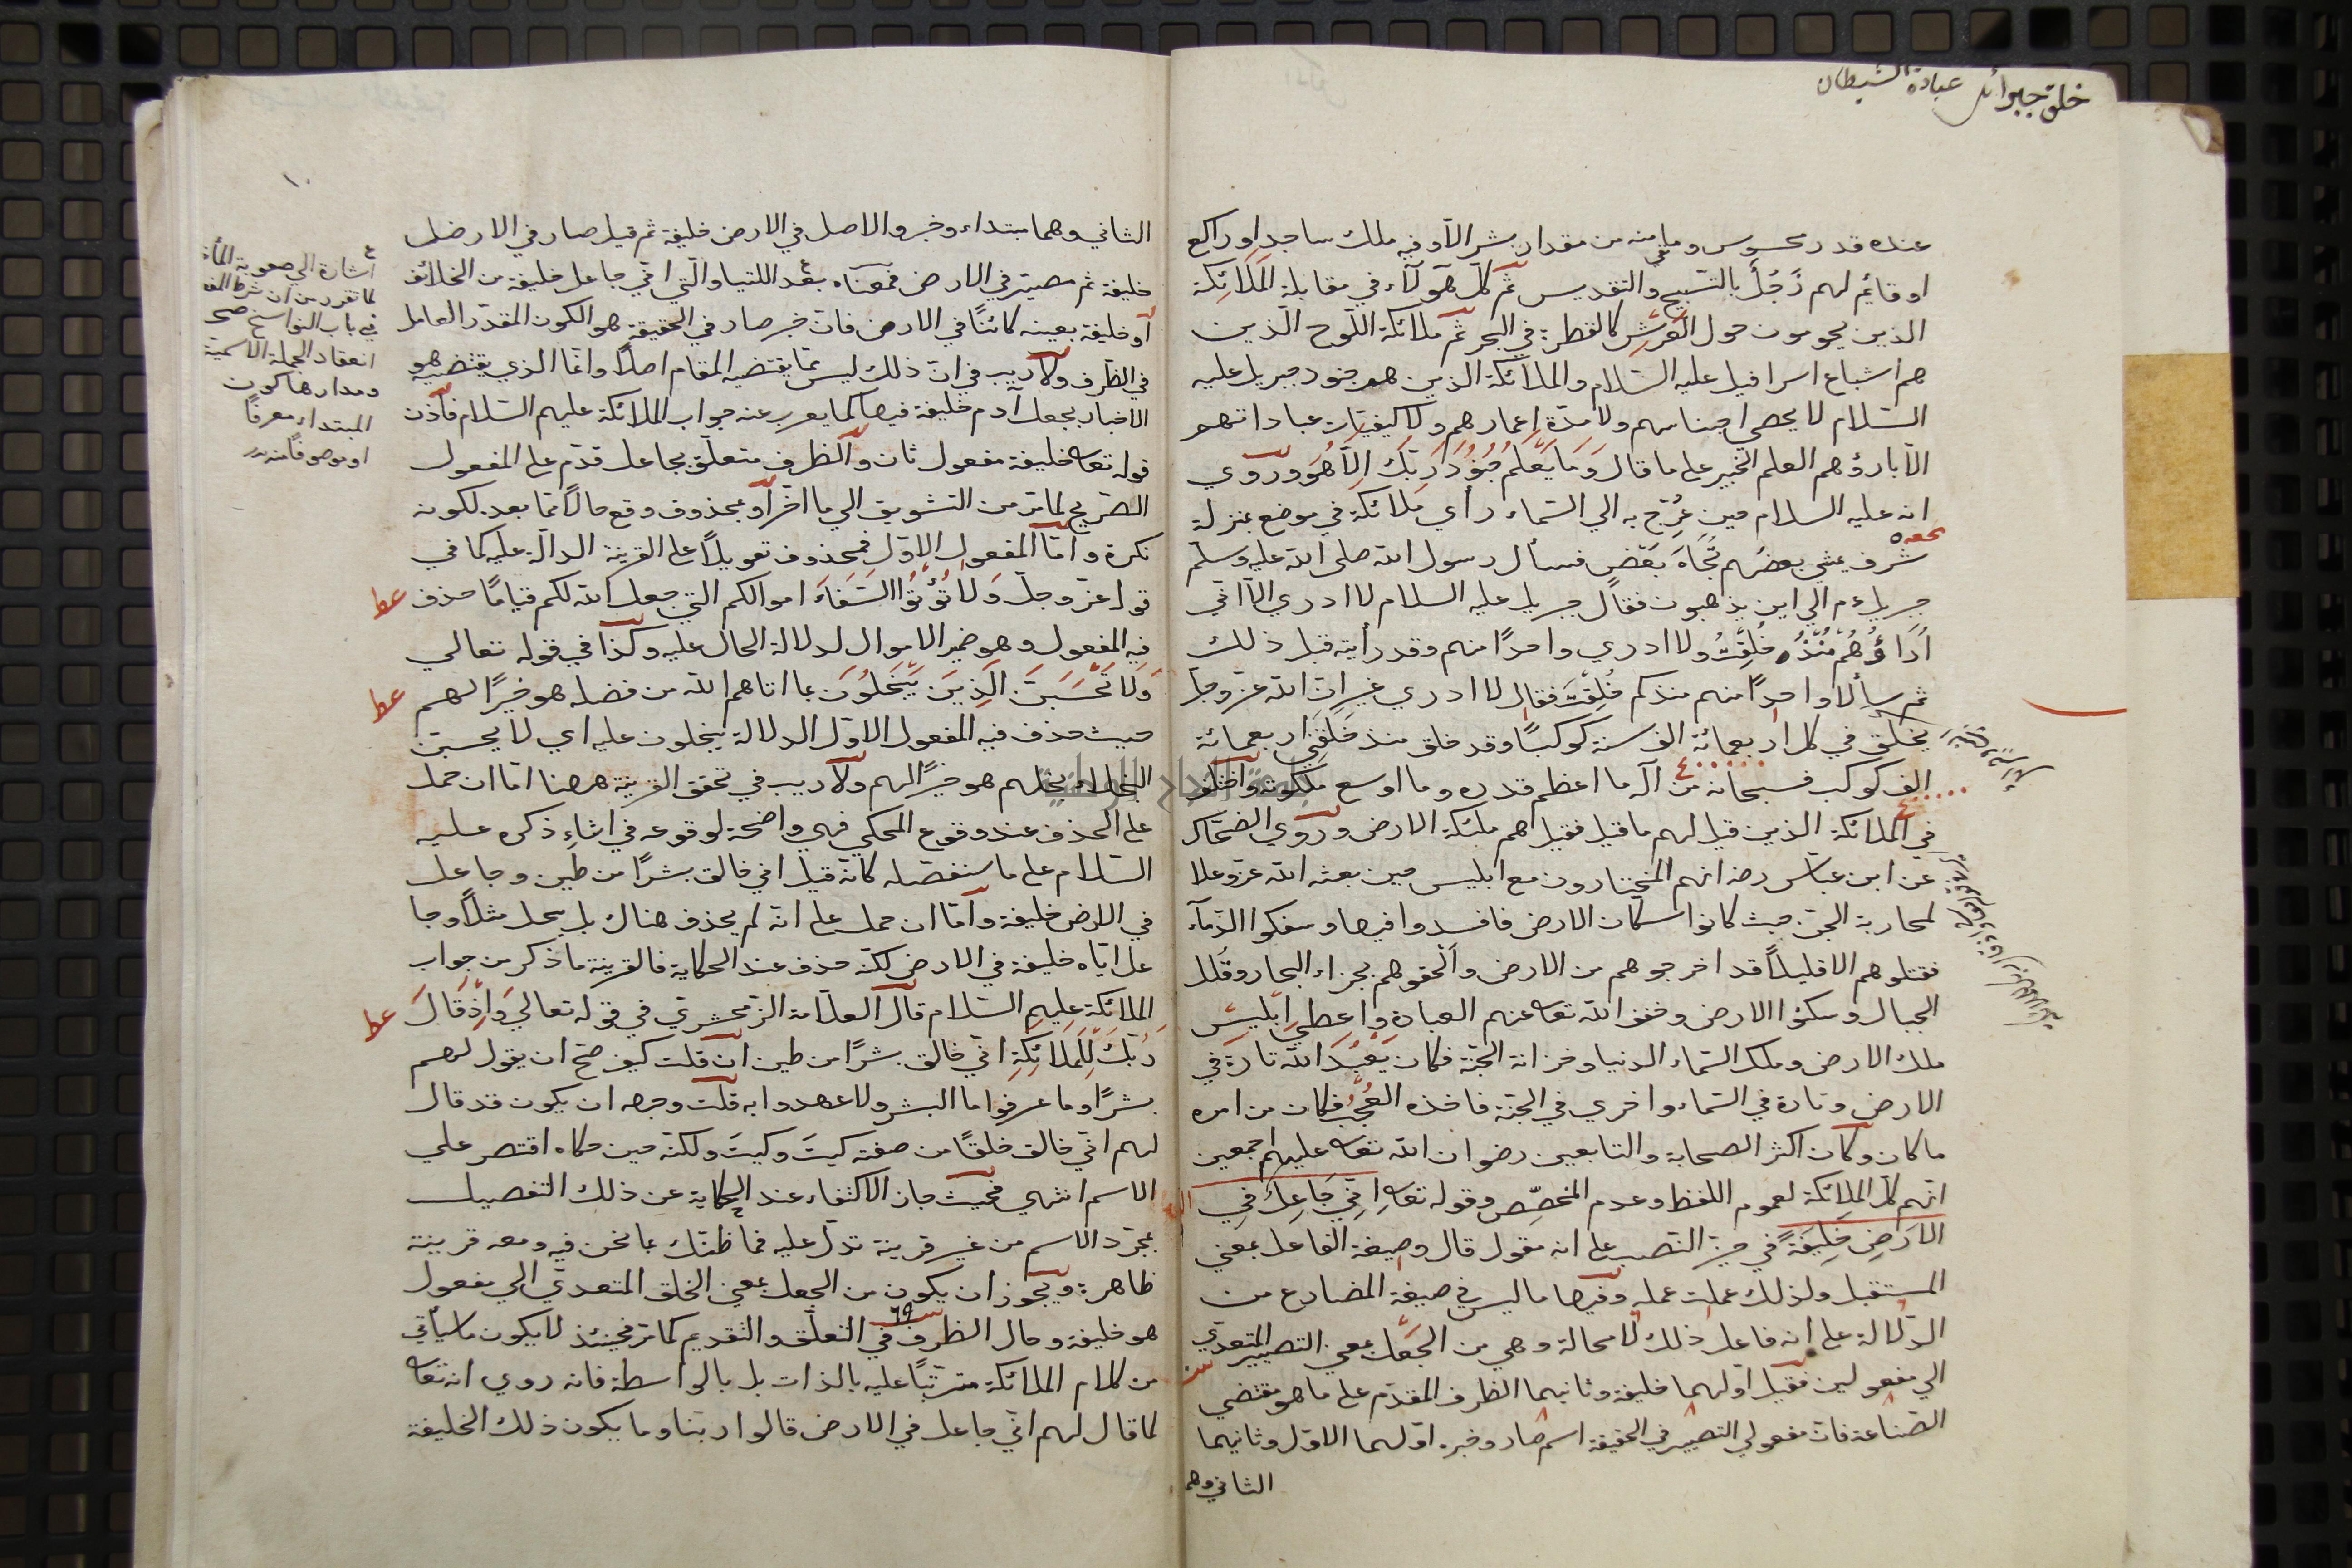 خلق جبرائل عبادة الشيطان
عنده قدر محسوس وما منه من مقدار شبر الا وفيه ملك ساجد او راكع
او قائم لهم زَجَلٌ بالتسبيح والتقديس ثم كل هؤلآء في مقابلة المَلَائِكة
الذين يحومون حول العَرْشِ كالقطرة في البحر ثم ملائكة اللّوح الّذين
هم اشياع اسرافيل عليه السّلام والملائكة الذين هم جنود جبريل عليه
السّلام لا يحصي اجناسهم ولا مدّة اعمارهم ولا كيفيّات عباداتهم
الّا بارؤهم العلم الخبير على ما قال وَمَا يَعْلَمُ جُنُودَ رَبِّكَ اِلَّا هُوَ وروي
انه عليه السلام حين عُرِّج به الي السّماء رأي ملائكة في موضع بمنزلة
شرف يمشي بعضهم تُجَاهَ بَعْضٍ فسأل رسول الله صلى الله عليه وسلّم
جبريل ءم الي اين يذهبون فقال جبريل عليه السلام لا ادري الّا انّي
اَرَاؤُهُمْ مُنْذُ خُلِقْتُ ولا ادري واحدًا منهم وقد رأيته قبل ذلك
ثم سألا واحدًا منهم منذ كم خُلِقْتَ فقال لا ادري غير ان الله عز وجل
يخلُق في كل اربعمائة الف سنة كوكبًا وقد خلق منذ خَلقَنِي اربعمائة
الف كوكب فسبحانه من اله ما اعظم قدره وما اوسع ملكوته واختُلف
في الملائكة الذين قيل لهم ما قيل فقيل هم ملئكة الارض وروي الضحّاك
عن ابن عباس رضه انهم المختارون مع ابليس حين بعثه الله عزّ وعلا
لمحاربة الجنّ حيث كانوا سكّان الارض فافسدوا فيها وسفكوا الدّمآء
فقتلوهم الا قليلاً قد اخرجوهم من الارض وألحقوهم بجزاء البحار وقُلَل
الجبال وسكنوا الارض وخفف الله تعا عنهم العبادة واعطي اِبْلِيسَ
ملك الارض وملك السّماء الدنيا وخزانة الجنّة فكان يَعْبُدَ الله تارة في
الارض وتارة في السّماء واخري في الجنّة فاخذه العُجْبُ فكان من امره
ما كان وكان اكثر الصحابة والتابعين رضوان الله تعا عليهم اجمعين
انّهم كل الملائكة لعموم اللفظ وعدم المخصِّص وقوله تعا اِنِّي جَاعِلٌ فِي
الاَرْضِ خَلِيفَةً في حيّز النّصب على انه مقول قال وصيغة الفاعل بمعني
المستقبل ولذلك عملت عمله وفيها ما ليس في صيغة المضارع من
الدّلالة على انه فاعل ذلك لا محالة وهي من الجَعْلِ بمعني التصيير المتعدّي
الي مفعولين فقيل اوّلهما خليفة وثانيهما الظرف المقدّم على ما هو مقتضي
الصّناعة فان مفعولي التصيير في الحقيقة اسم صار وخبره اوّلهما الاوّل وثانيهما
الثاني وهما
الثاني وهما مبتداء وخبر والاصل في الارض خليفة ثم قيل صار في الارض
خليفة ثم مصيّر في الارض فمعناه بعد اللتيا والّتي انّي جاعل خليفة من الخلائف
أو خليفة بعينه كائنًا في الارض فان خبر صار في الحقيقة هو الكون المقدّر العامل
في الظّرف ولا ريب في انّ ذلك ليس ممّا يقتضيه المقام اصلًا وانّما الذي يقتضيه هو
الاخبار بجعل آدم خليفة فيها كما يعرب عنه جواب الملائكة عليهم السّلام فاذن
قوله تعا خليفة مفعول ثان والظّرف متعلّق بجاعل قدّم على المفعول
الصّريح لما مرّ من التشويق الي ما اخّر أو بمحذوف وقع حالًا ممّا بعد لكونه
نكرة وامّا المفعول الاوّل فمحذوف تعويلاً على القرينة الدالّة عليه كما في
قوله عزّ وجلّ وَلَا تُؤْتُوا السُّفَهَاءَ اموالكم التي جعل الله لكم قيامًا حذف
فيه المفعول وهو ضمير الاموال لدلالة الحال عليه وكذا في قوله تعالي
وَلَا تَحْسَبَنَّ الَّذِينَ يَبْخَلُونَ بما اتاهم الله من فضله هو خيرًا لهم
حيث حذف فيه المفعول الاوّل لدلالة يبخلون عليه اي لا يحسبنّ
البخلاء بخلهم هو خيرًا لهم ولا ريب في تحقق القرينة ههنا امّا ان حمل
على الحذف عند وقوع المحكي فهي واضحة لوقوعه في اثناء ذكره عليه
السّلام على ما سنفصّله كانّه قيل اني خالق بشرًا من طين وجاعل
في الارض خليفة وامّا ان حمل على انّه لم يحذف هناك بل يحل مثلاً وجا
عل ايّاه خليفة في الارض لكنّه حذف عند الحكاية فالقرينة ما ذكر من جواب
الملائكة عليهم السّلام قال العلاّمة الزمخشري في قوله تعالي وَاِذْ قَالَ
رَبُّكَ لِلْمَلَائِكَةِ انّي خالق بشرًا من طين ان قلت كيف صحّ ان يقول لهم
بشرًا وما عرفوا ما البشر ولا عهدوا به قلت وجهه ان يكون قد قال
لهم انّي خالق خلقًا من صفته كيتَ وكيتَ ولكنّه حين حكاه اقتصر على
الاسم انتهي فحيث جاز الاكتفاء عند الحكاية عن ذلك التفصيل
بمجرّد الاسم من غير قرينة تدلّ عليه فما ظنّك بما نحن فيه ومعه قرينة
ظاهرة ويجوز ان يكون من الجعل بمعني الخلق المتعدّي الي مفعول
هو خليفة وحال الظّرف في التعلّق والتقديم كما مرّ فحينئذ لا يكون ما سيأتي
من كلام الملائكة مترتّبًا عليه بالذات بل بالواسطة فانه روي انه تعا
لما قال لهم انّي جاعل في الارض قالوا ربنا وما يكون ذلك الخليفة
١٠
اشارة الي صعوبة
لما تقرر من ان شرط
في باب النواسخ صحه
انعقاد الجملة الاسمية
ومدارها كون
المبتداء معرفًا
او موصوفًا منه
عط
عط
عط